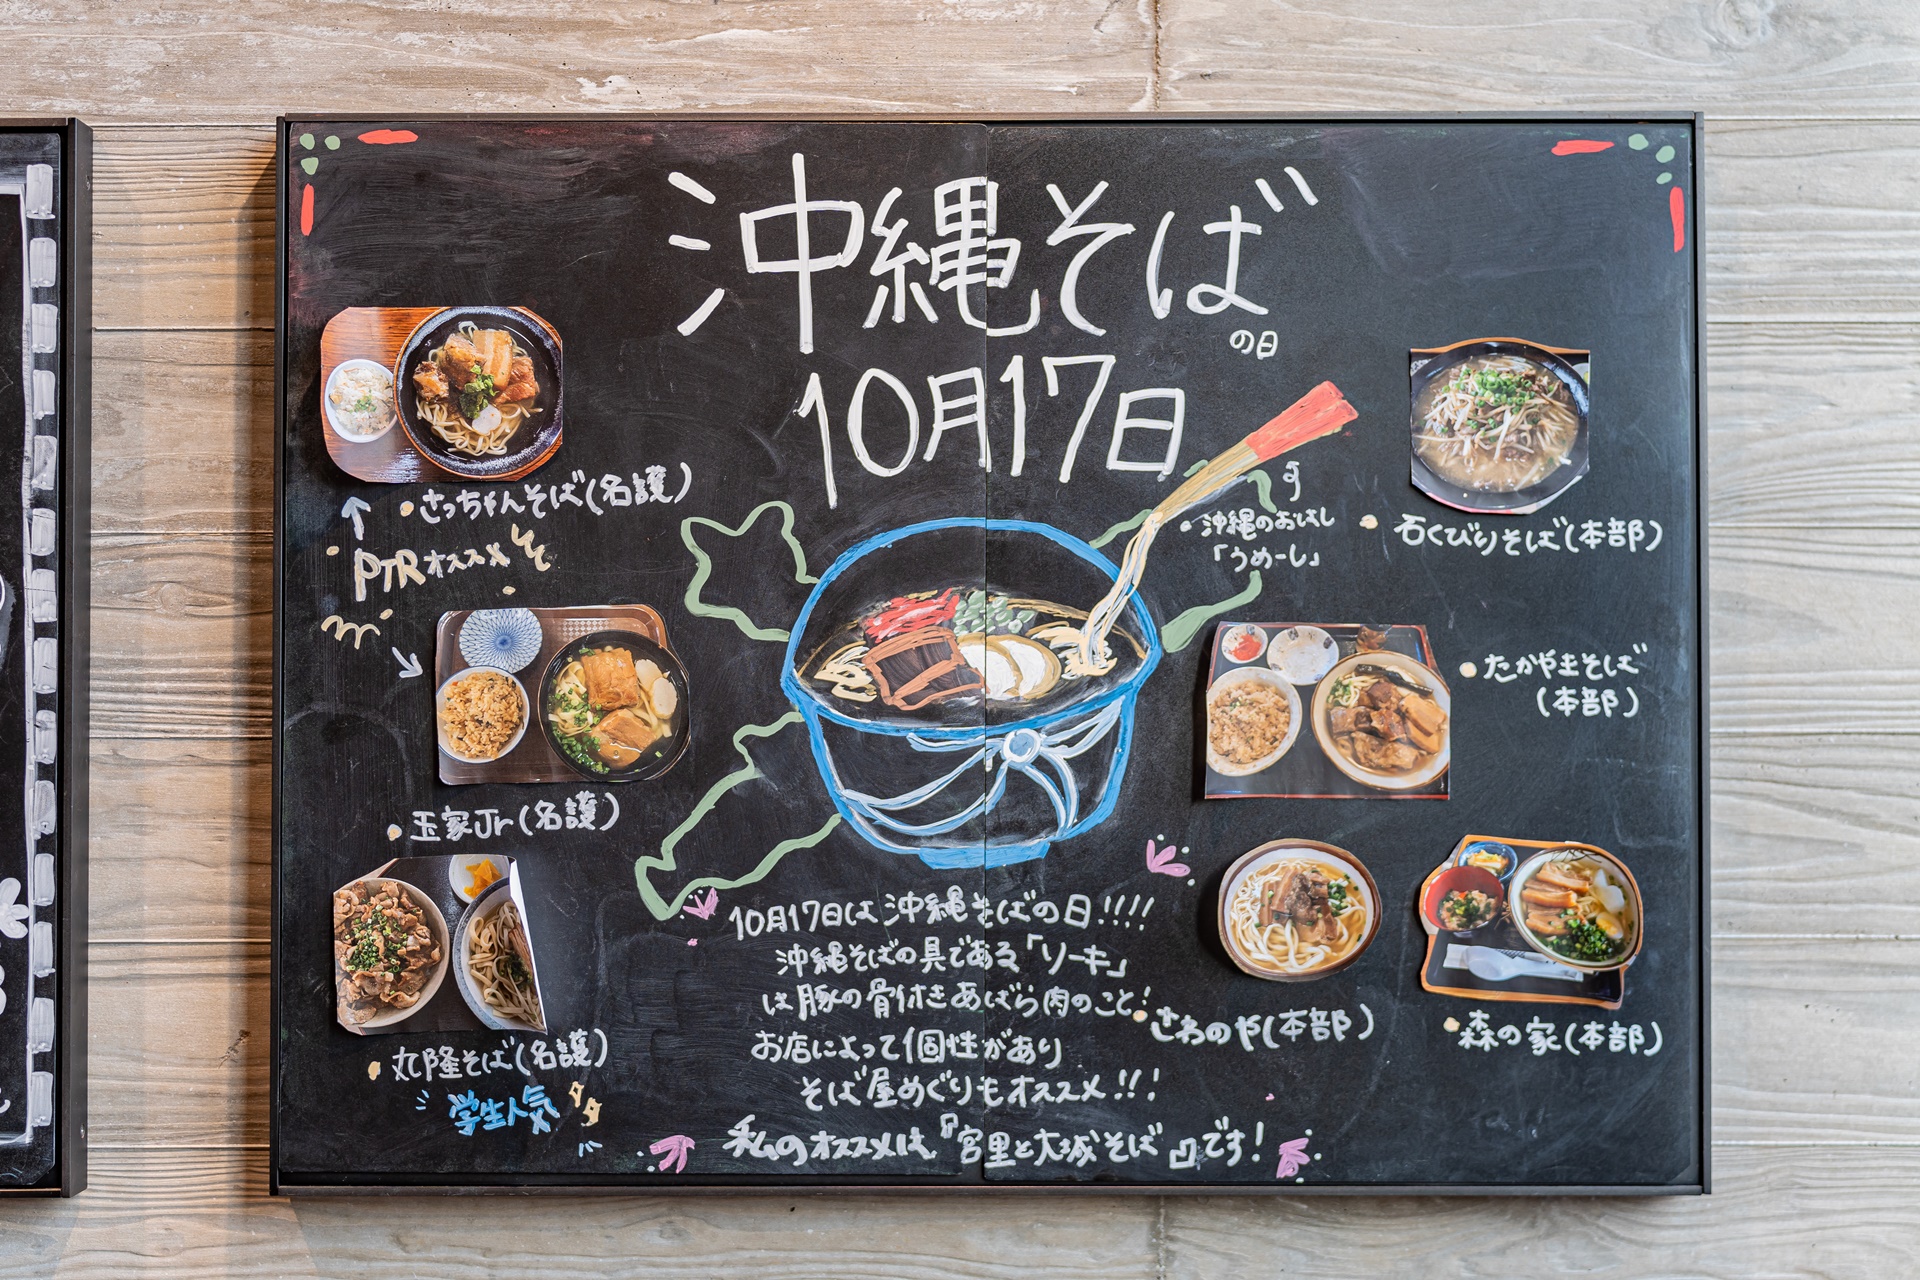 沖縄そば
の日
10月17日
・さっちゃんそば(名護)
↑
PTRオススメ
・玉家Jr(名護)
・丸隆そば(名護)
学生人気
・沖縄のおはし
「うめーし」
・石くびりそば(本部)
・たかや主そば
(本部)
・さわのや(本部)
・森の家(本部)
10月17日は沖縄そばの日!!!!
沖縄そばの具である「ソーキ」
は豚の骨付きあばら肉のこと!
お店によって個性があり
そば屋めぐりもオススメ!!!
私のオススメは『宮里と大城そば』です!